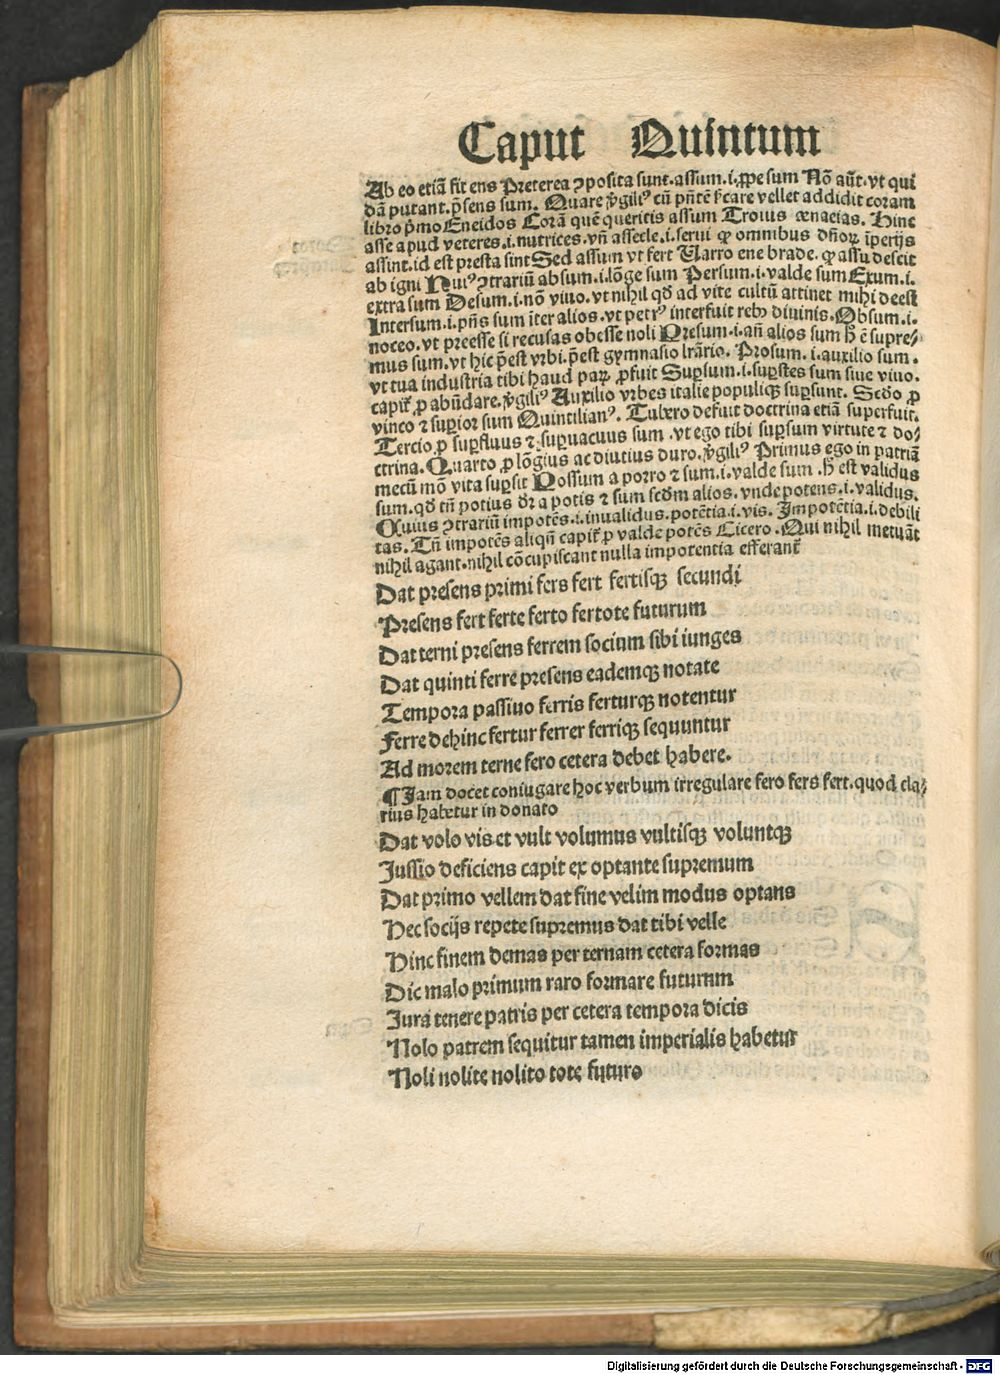 Caput Quintum
Ab eo etiã fit ens Preterea ꝯposita sunt. assum. i. ꝓpe sum Nõ aũt. vt qui
dã putant. p̃sens sum. Quare v̾gili⁹ cũ p̃ñtẽ f̃care vellet addidit coram
libro p̾mo Eneidos Corã quẽ queritis assum Troius ænaeias. Hinc
asse apud veteres. i. nutrices. vñ assecle. i. serui ꝙ omnibus dñoꝝ ĩperijs
assint. id est presta sint Sed assum vt fert Uarro ene brade. ꝙ assu descit
ab igni Hui⁹ ꝯtrariũ absum. i. lõge sum Persum. i. valde sum Exum. i.
extra sum Desum. i. nõ viuo. vt nihil qď ad vite cultũ attinet mihi deest
Intersum. i. p̃ñs sum ĩter alios. vt petr⁹ interfuit reb⁹ diuinis. Obsum. i.
noceo. vt preesse si recusas obesse noli Presum. i. añ alios sum h̃ ẽ supre⸗
mus sum. vt hic p̃est vrbi. p̃est gymnasio lr̃ario. Prosum. i. auxilio sum.
vt tua industria tibi haud paꝝ ꝓfuit Suꝑsum. i. suꝑstes sum siue viuo.
capit̃ ꝓ abũdare. v̾gili⁹ Auxilio vrbes italie populiqꝫ suꝑsunt. Scďo ꝓ
vinco ⁊ suꝑior sum Quintilian⁹. Tubero defuit doctrina etiã superfuit.
Tercio ꝓ suꝑfluus ⁊ suꝑuacuus sum. vt ego tibi suꝑsum virtute ⁊ do⸗
ctrina. Quarto ꝓ lõgius ac diutius duro. v̾gili⁹ Primus ego in patriã
mecũ mõ vita suꝑsit Possum a porro ⁊ sum. i. valde sum. h̃ est validus
sum. qď tñ potius dr̃ a potis ⁊ sum scďm alios. vnde potens. i. validus.
Cuius ꝯtrariũ impotẽs. i. inualidus. potẽtia. i. vis. Impotẽtia. i. debili
tas. Tñ impotẽs aliqñ capit̃ ꝓ valde potẽs Cicero. Qui nihil metuãt
nihil agant. nihil cõcupiscant nulla impotentia efferant̃
Dat presens primi fers fert fertisqꝫ secundi
Presens fert ferte ferto fertote futurum
Dat terni presens ferrem socium sibi iunges
Dat quinti ferre presens eademqꝫ notate
Tempora passiuo ferris ferturqꝫ notentur
Ferre dehinc fertur ferrer ferriqꝫ sequuntur
Ad morem terne fero cetera debet habere.
¶Jam docet coniugare hoc verbum irregulare fero fers fert. quod cla⸗
rius habetur in donato
Dat volo vis et vult volumus vultisqꝫ voluntqꝫ
Jussio deficiens capit ex optante supremum
Dat primo vellem dat fine velim modus optans
Hec socijs repete supremus dat tibi velle
Hinc finem demas per ternam cetera formas
Dic malo primum raro formare futurum
Jura tenere patris per cetera tempora dicis
Nolo patrem sequitur tamen imperialis habetur
Noli nolite nolito tote futuro
Digitalisierung gefördert durch die Deutsche Forschungsgemeinschaft - DFG